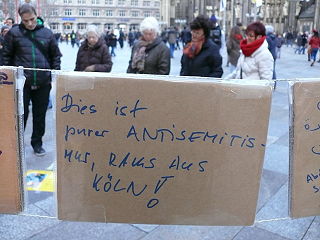 Dies ist
purer ANTISEMITIS-
MUS, RAUS AUS
KÖLN!